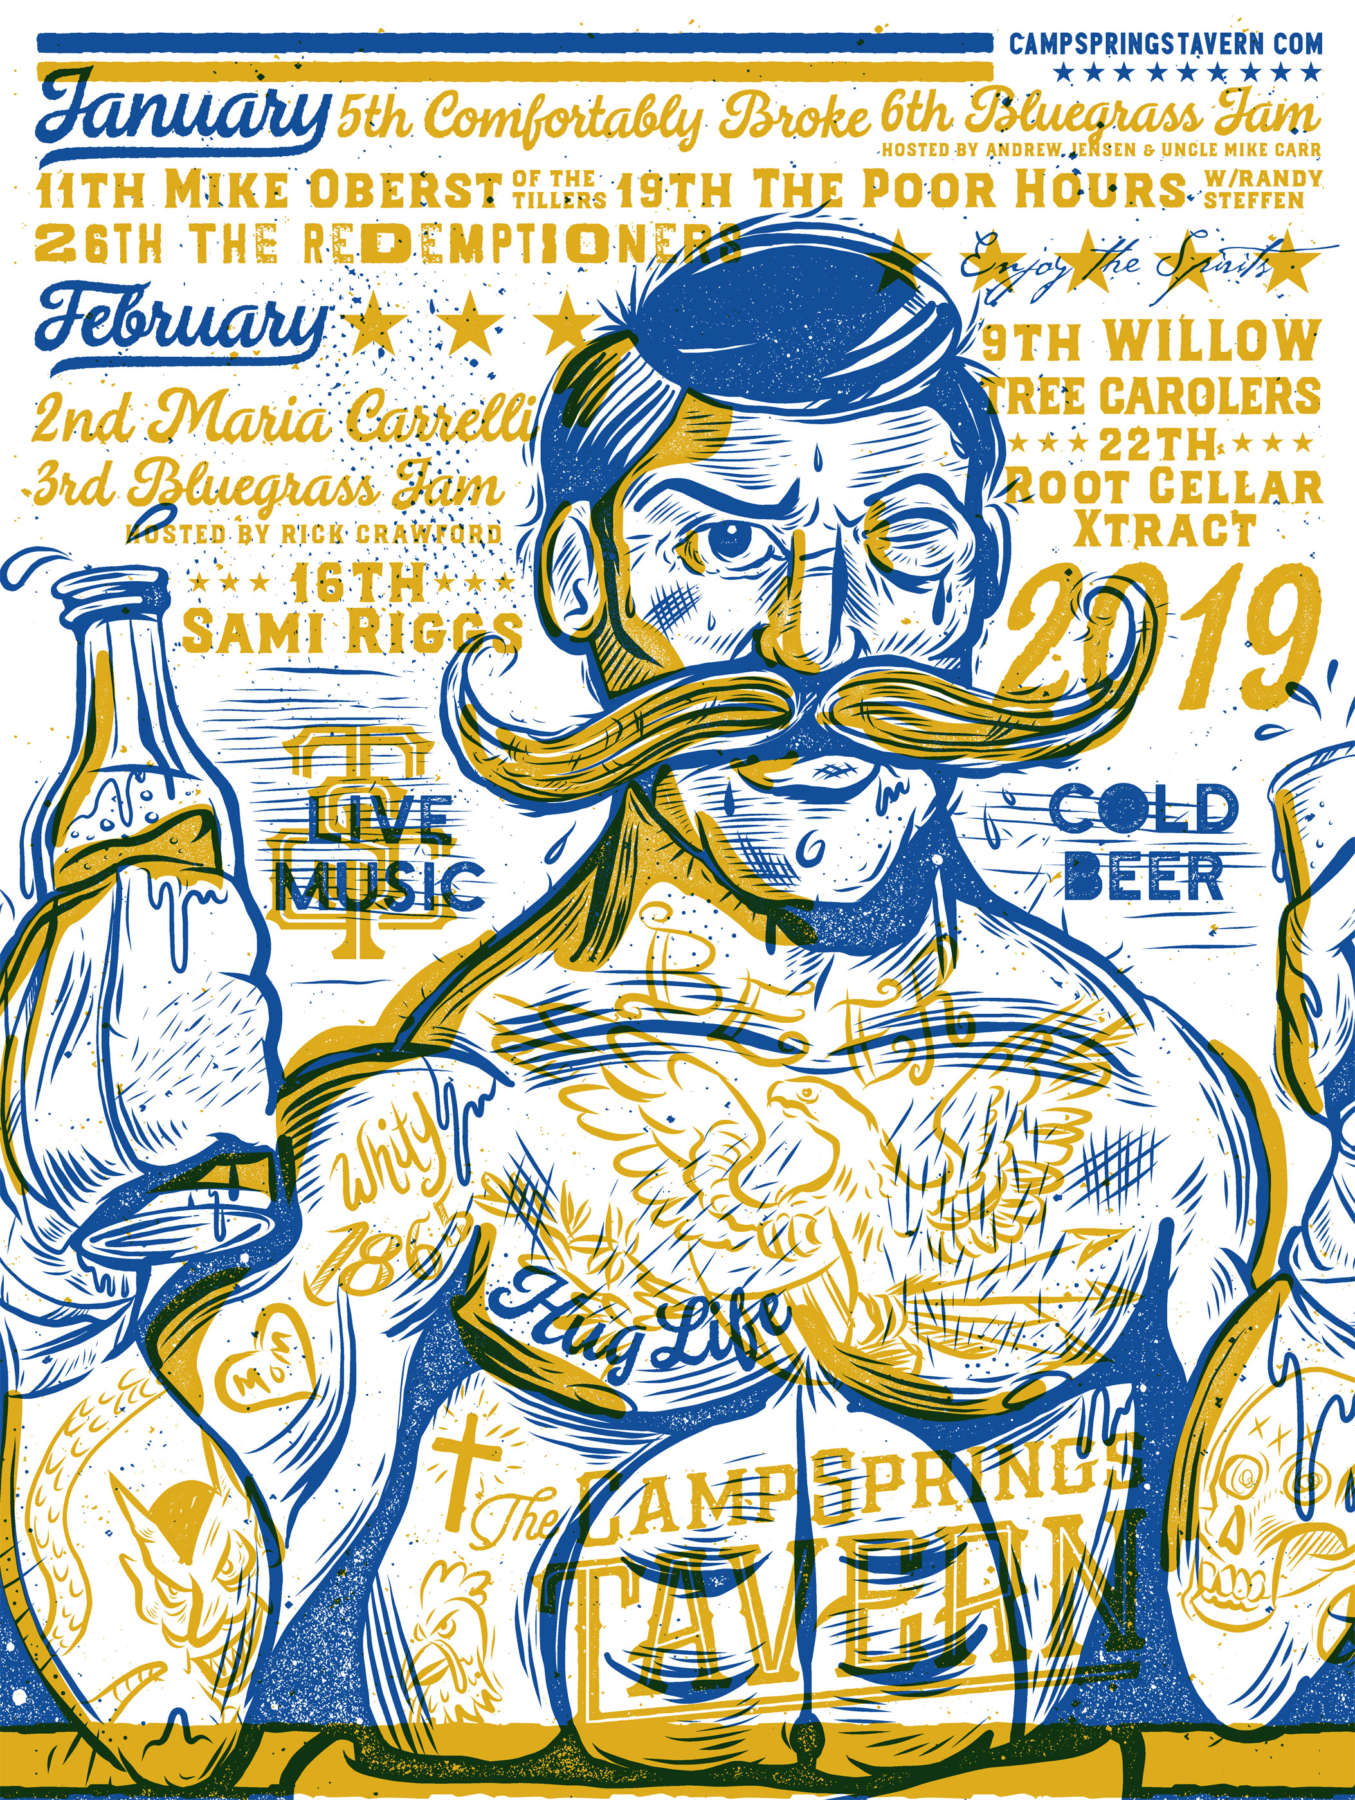 CAMPSPRINGSTAVERN COM
January 5th Comfortably Broke 6th Bluegrass Jam
HOSTED BY ANDREW JENSEN & UNCLE MIKE CARR
11TH MIKE OBERST OF THE TILLERS 19TH THE POOR HOURS W/RANDY STEFFEN
26TH THE REDEMPTIONERS
Enjoy the Spirits
February
2nd Maria Carrelli
3rd Bluegrass Jam
HOSTED BY RICK CRAWFORD
16TH
SAMI RIGGS
9TH WILLOW
TREE CAROLERS
22TH
ROOT CELLAR
XTRACT
2019
LIVE
MUSIC
COLD
BEER
BEER
Whity
1865
Hug Life
MOM
The CAMPSPRINGS
TAVERN